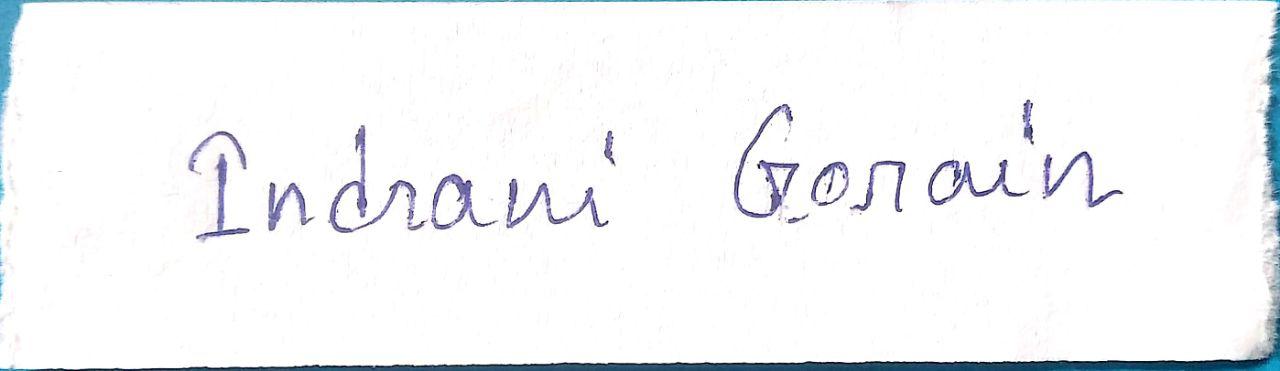 Indrani Gorain